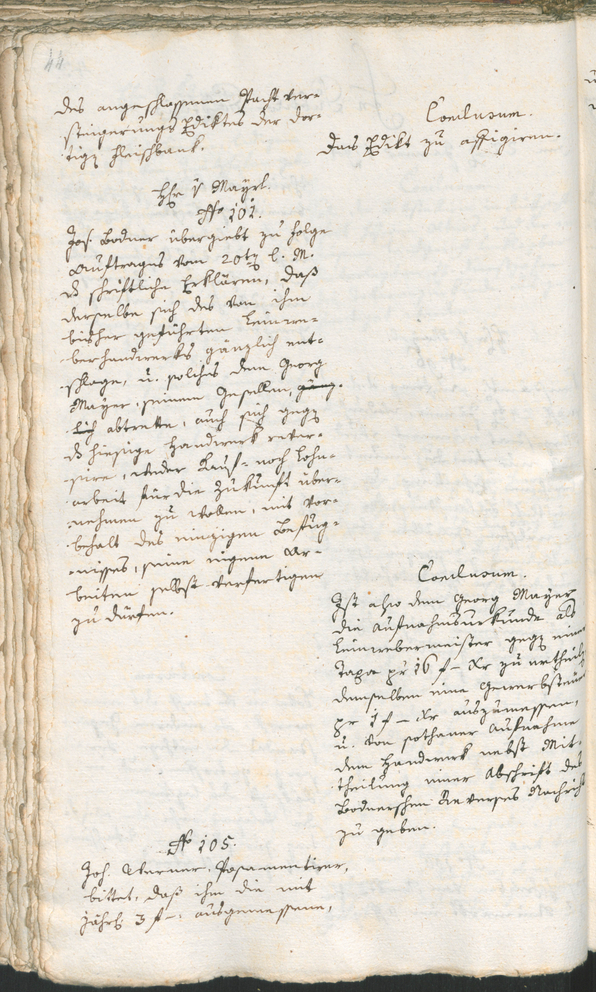 44
des angeschlossenen Pacht ver-
steigerungs Ediktes der dor-
tigen Fleischbank.
Conclusum.
Das Edikt zu affigiren.
Hr. v Mayrl.
No 101.
Jos. Bodner übergiebt zu folge
Auftrages vom 20ten l. M.
die schriftliche Erklären, daß
derselbe sich des von ihm
bisher geführten Leinwe-
berhandwerks gänzlich ent-
schlage, u. solches dem Georg
Mayer, seinem Gesellen, gänz-
lich abtrette, auch sich gegen
das hiesige Handwerk rever-
sire, weder Kauf- noch Lohn-
arbeit für die Zukunft über-
nehmen zu wollen, mit Vor-
behalt des einzigen Befug-
nisses, seine eigene Ar-
beiten selbst verfertigen
zu dürfen.
Conclusum.
Ist also dem Georg Mayer
die Aufnahmsurkunde als
Leinwebermeister gegen einer
Taxa pr 16 f – Xr zu ertheilen
demselben eine Gewerbsteuer
pr 1 f – Xr auszumessen,
u. von sothaner Aufnahme
dem Handwerk nebst Mit-
theilung einer Abschrift des
Bodnerschen Reverses Nachricht
zu geben.
No 105.
Joh. Werner, Posamentirer,
bittet, daß ihm die mit
jährl. 3 f –. ausgemessene,